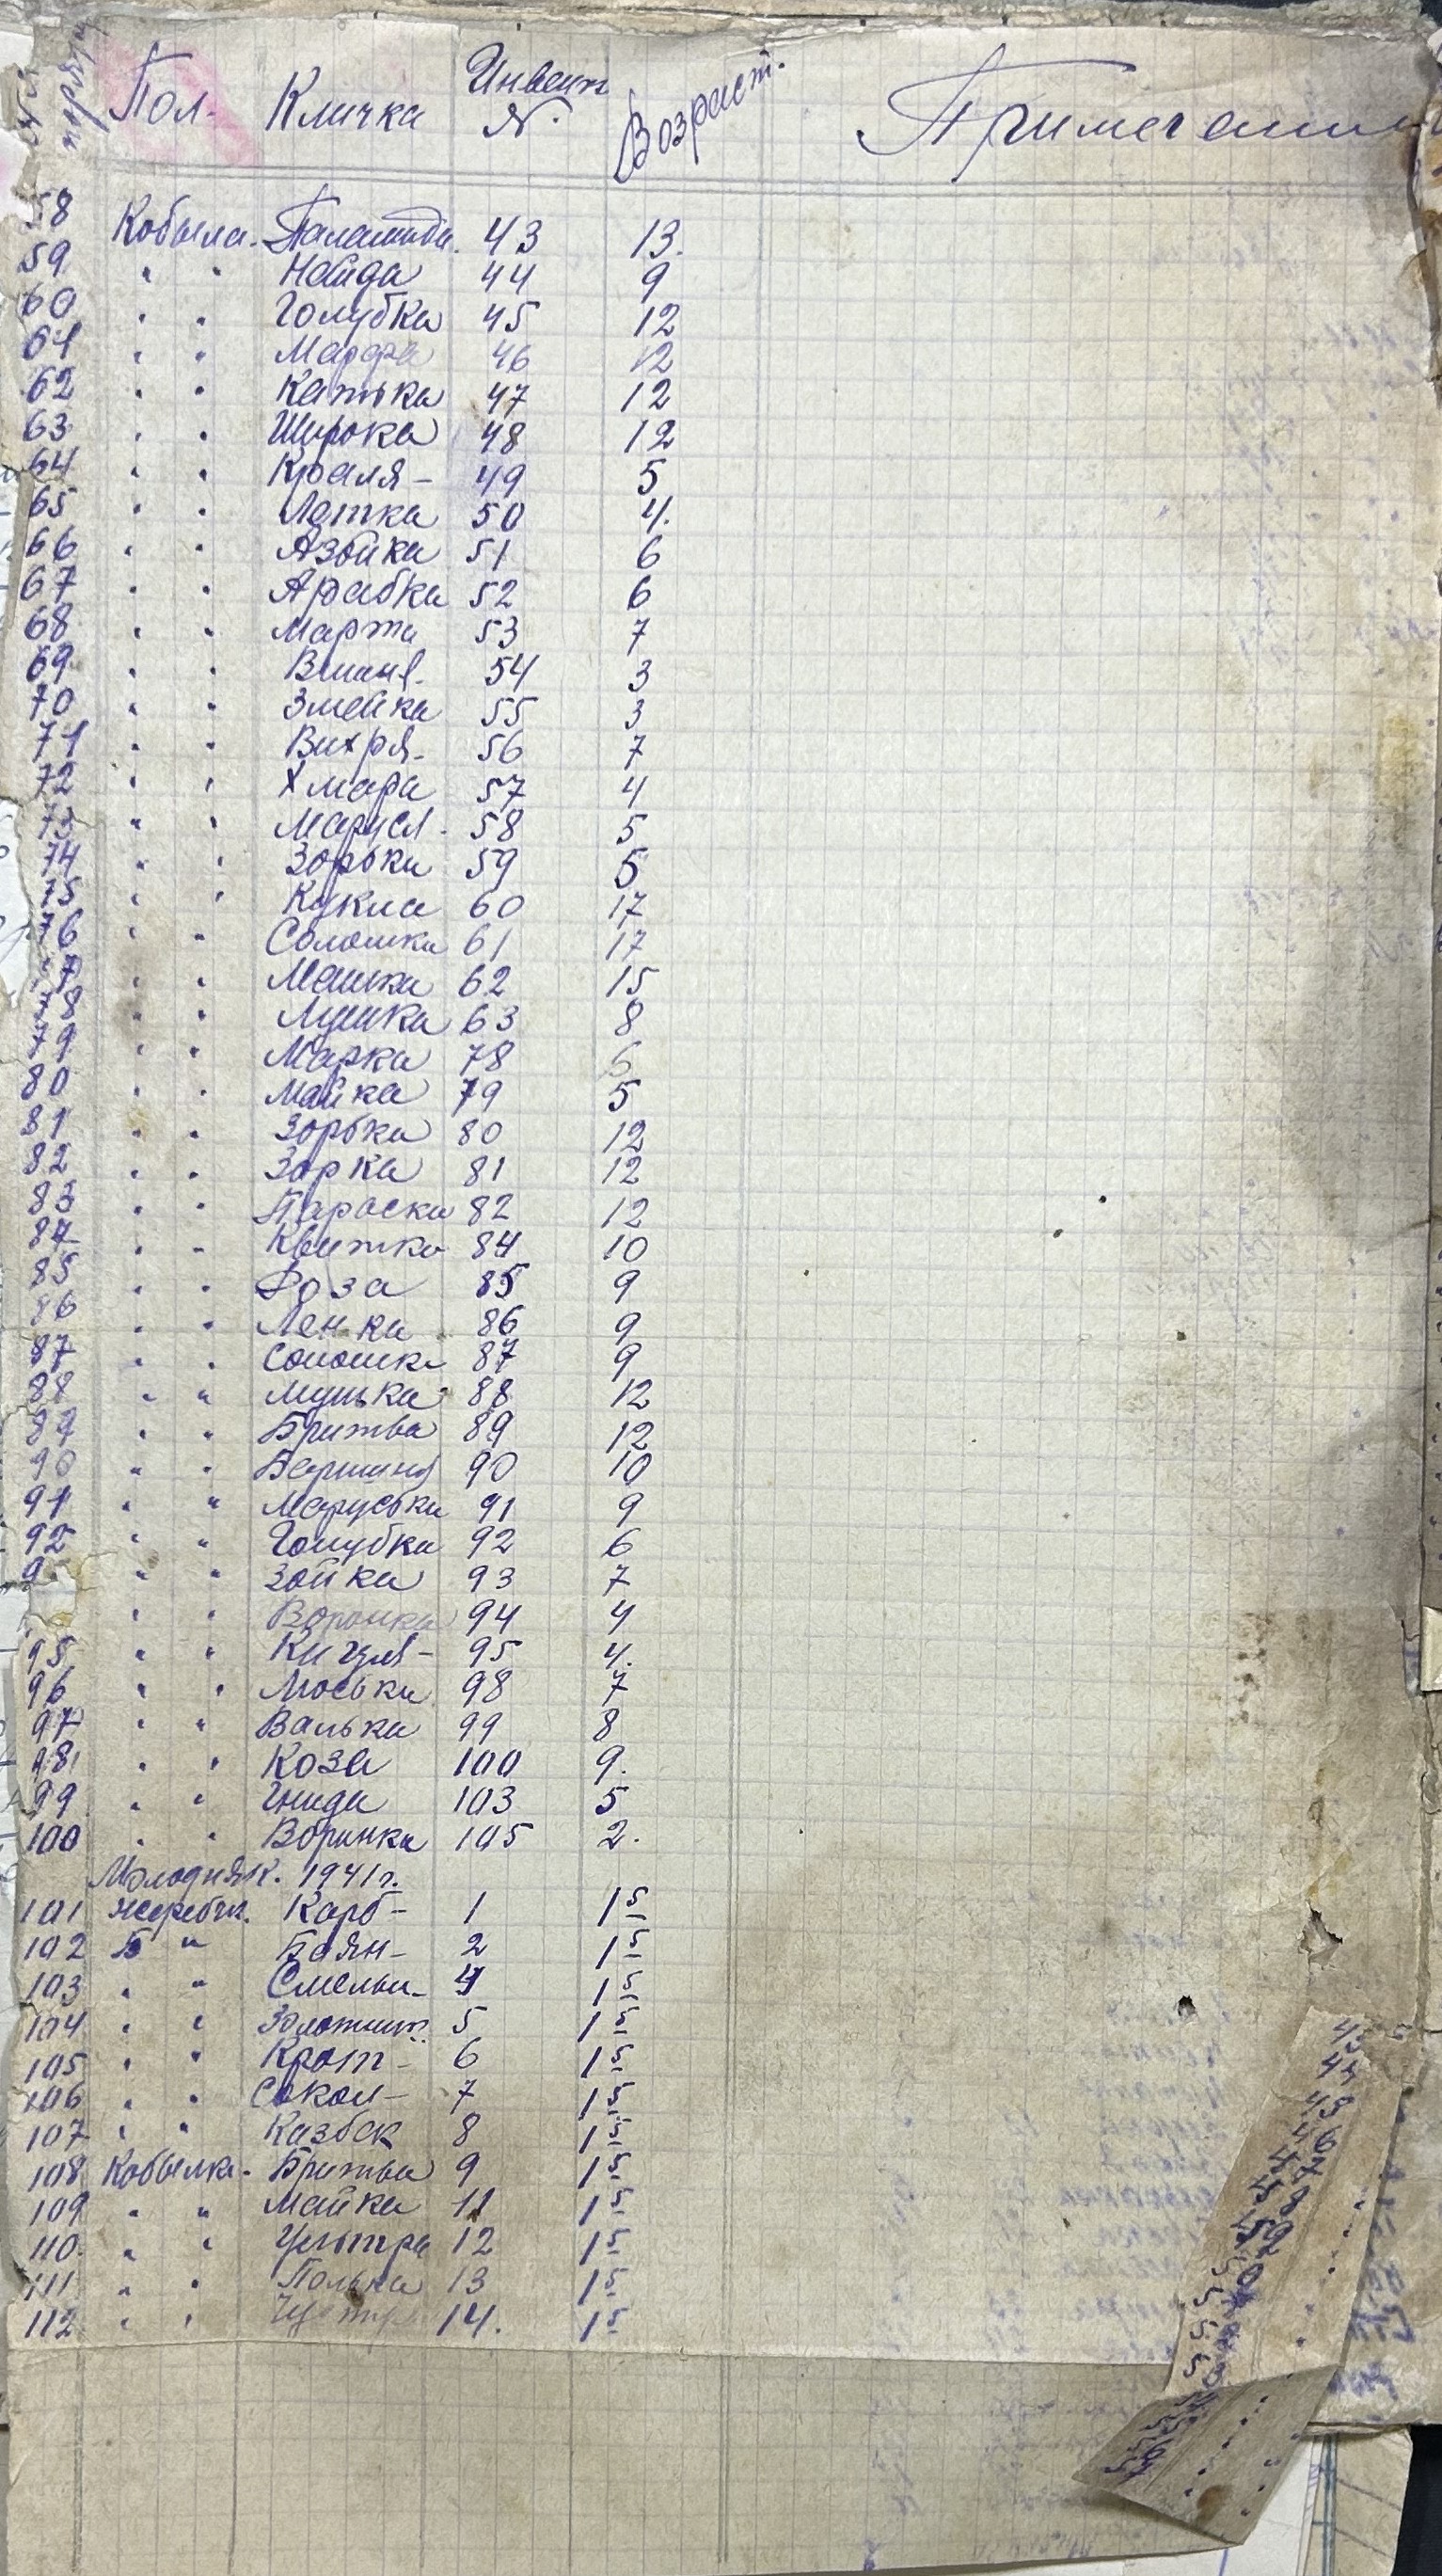 Пол. Кличка Инвент №. Возраст. Примечание
58 Кобыла. 43 13.
59 " " Найда 44 9
60 " " Голубка 45 12
61 " " Марфа 46 12
62 " " Катька 47 12
63 " " Широка 48 12
64 " " Краля - 49 5
65 " " Лотка 50 4.
66 " " 51 6
67 " " Арабка 52 6
68 " " Марта 53 7
69 " " 54 3
70 " " Змейка 55 3
71 " " Вихря - 56 7
72 " " Хмара 57 4
73 " " Маруся - 58 5
74 " " Зорька 59 5
75 " " Кукла 60 17
76 " " Солошка 61 17
77 " " Машка 62 15
78 " " Лушка 63 8
79 " " Марка 78 6
80 " " Майка 79 5
81 " " Зорька 80 12
82 " " Зорка 81 12
83 " " Параска 82 12
84 " " Квитка 84 10
85 " " Роза 85 9
86 " " Ленка 86 9
87 " " Солошка 87 9
88 " " Мушка 88 12
89 " " Бритва 89 12
90 " " 90 10
91 " " Маруська 91 9
92 " " Голубка 92 6
9 " " Зойка 93 7
" " Воронка 94 4
95 " " 95 4.
96 " " Моська 98 7
97 " " Валька 99 8
98 " " Коза 100 9.
99 " " Гнида 103 5
100 " " Воронка 105 2.
Молодняк. 1941 г.
101 жеребч. Карб - 1 1 5
102 " Баян - 2 1 5
103 " " Смелый - 4 1 5
104 " " 5 1 5
105 " " Крот - 6 1 5
106 " " Сокол - 7 1 5
107 " " Казбек 8 1 5
108 Кобылка. Бритва 9 1 5
109 " " Майка 11 1 5
110. " " 12 1 5
111 " " Полька 13 1 5
112 " " 14. 1 5